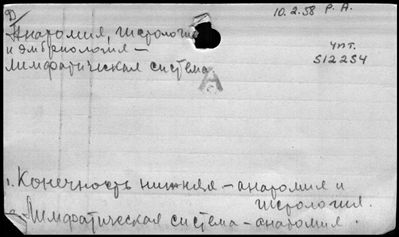 10.2.58 Р. А.
Анатомия, гистология
и эмбриология —
лимфатическая система
Чит.
512254
А
1. Конечность нижняя — анатомия и
гистология.
2. Лимфатическая система — анатомия.